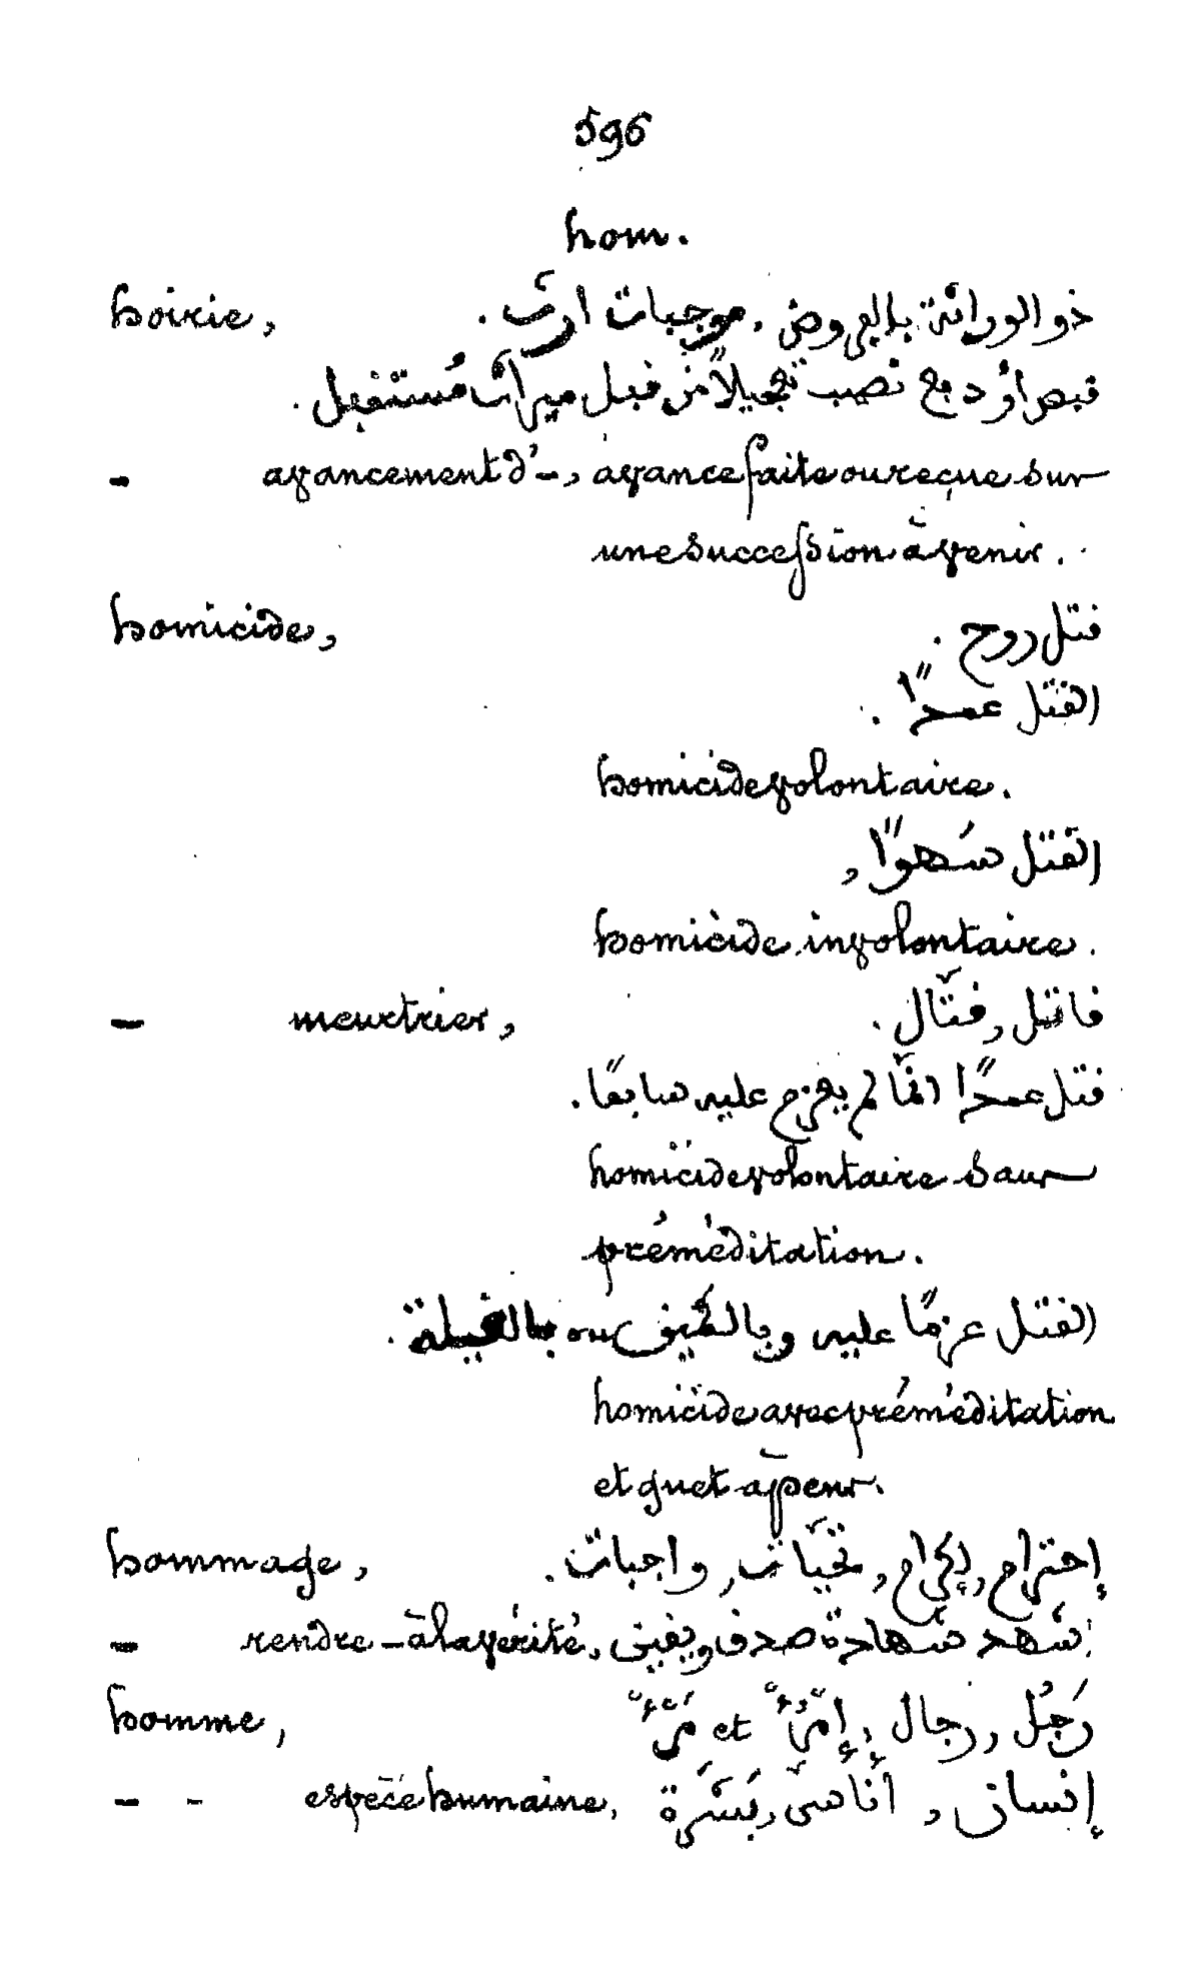 596
hom.
hoirie, ذو الوراثة بالعروض, موجبات ارث.
قبص أو دفع نصب تعجيلاً من قبل ميراث مُستقبل.
- avancement d'-, avance faite ou reçue sur
une succession à venir.
homicide, قتل روح.
القتل عمدًا.
homicide volontaire.
القتل سَهوًا,
homicide involontaire.
- meurtrier, قاتل, قتّال.
قتل عمدًا انمّا لم يعزم عليه سابقًا.
homicide volontaire sans
préméditation.
القتل عزمًا عليه وبالكمين ou بالغيلة.
homicide avec préméditation
et guet apens.
hommage, إحترام, إكرام, تحيّات, واجبات.
- rendre - à la vérité, شهد شهادة صدق ويقين
homme, رَجُل, رجال, إمرُؤٌ et مَرْءٌ
- - espèce humaine, إنسان, أناس, بَشَرة